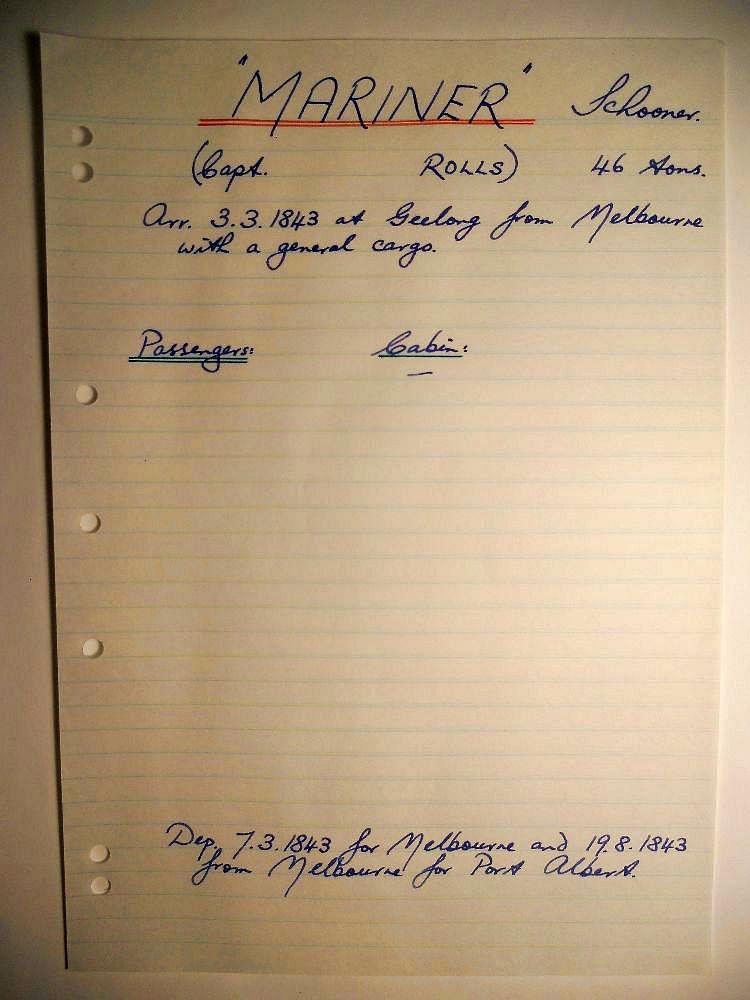 "MARINER" Schooner.
(Capt. ROLLS) 46 tons.
Arr. 3.3.1843 at Geelong from Melbourne
with a general cargo.
Passengers: Cabin:
—
Dep. 7.3.1843 for Melbourne and 19.8.1843
from Melbourne for Port Albert.